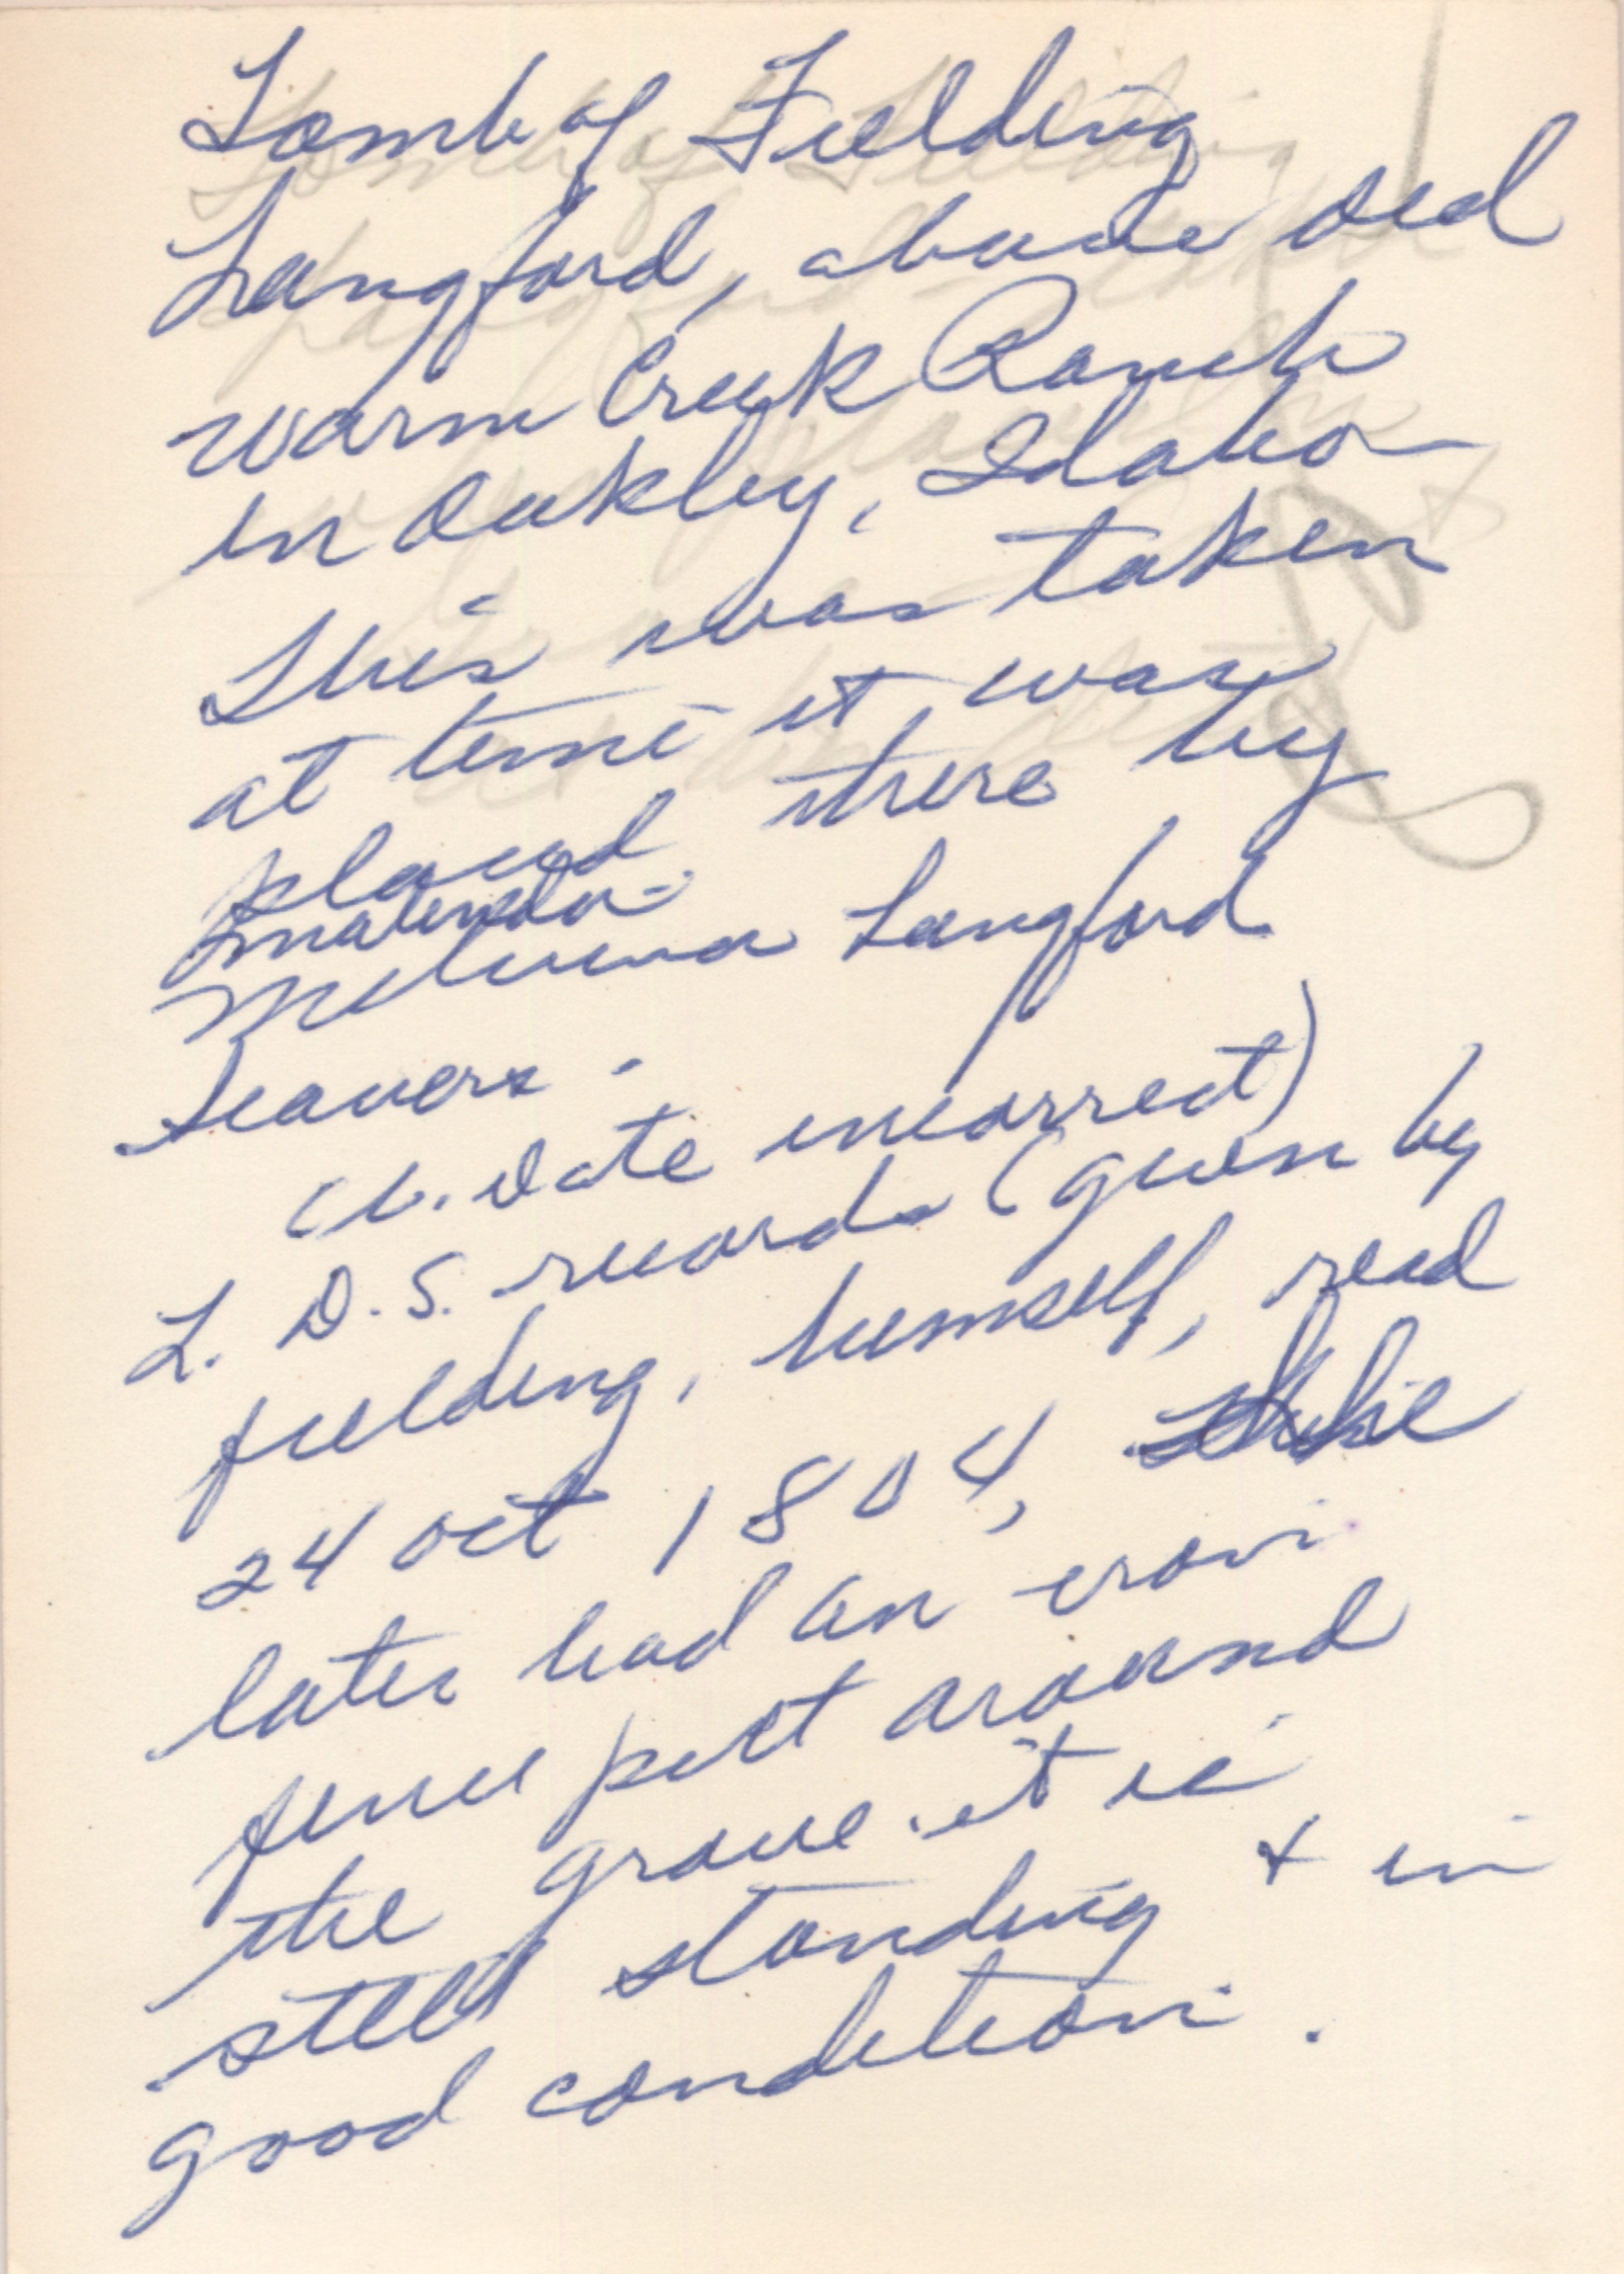 Tomb of Fielding
Langford, above old
warm Creek Ranch
in Oakley, Idaho
This was taken
at time it was
placed there by
Matilda
Melvina Langford
Seavers.
(b. date incorrect)
L. D. S. records (given by
fielding, himself, read
24 oct 1804, She
later had an iron
fence put around
the grave. it is
still standing + in
good condition.